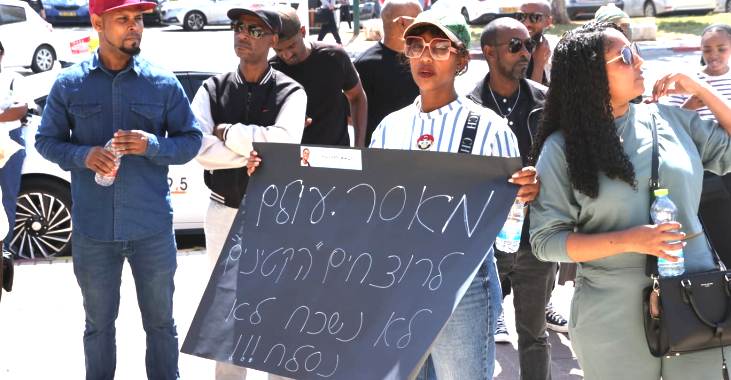 מאסר עולם
לרוצחים "הקטינים"
לא נשכח לא
נסלח!!!
COACH
2.5